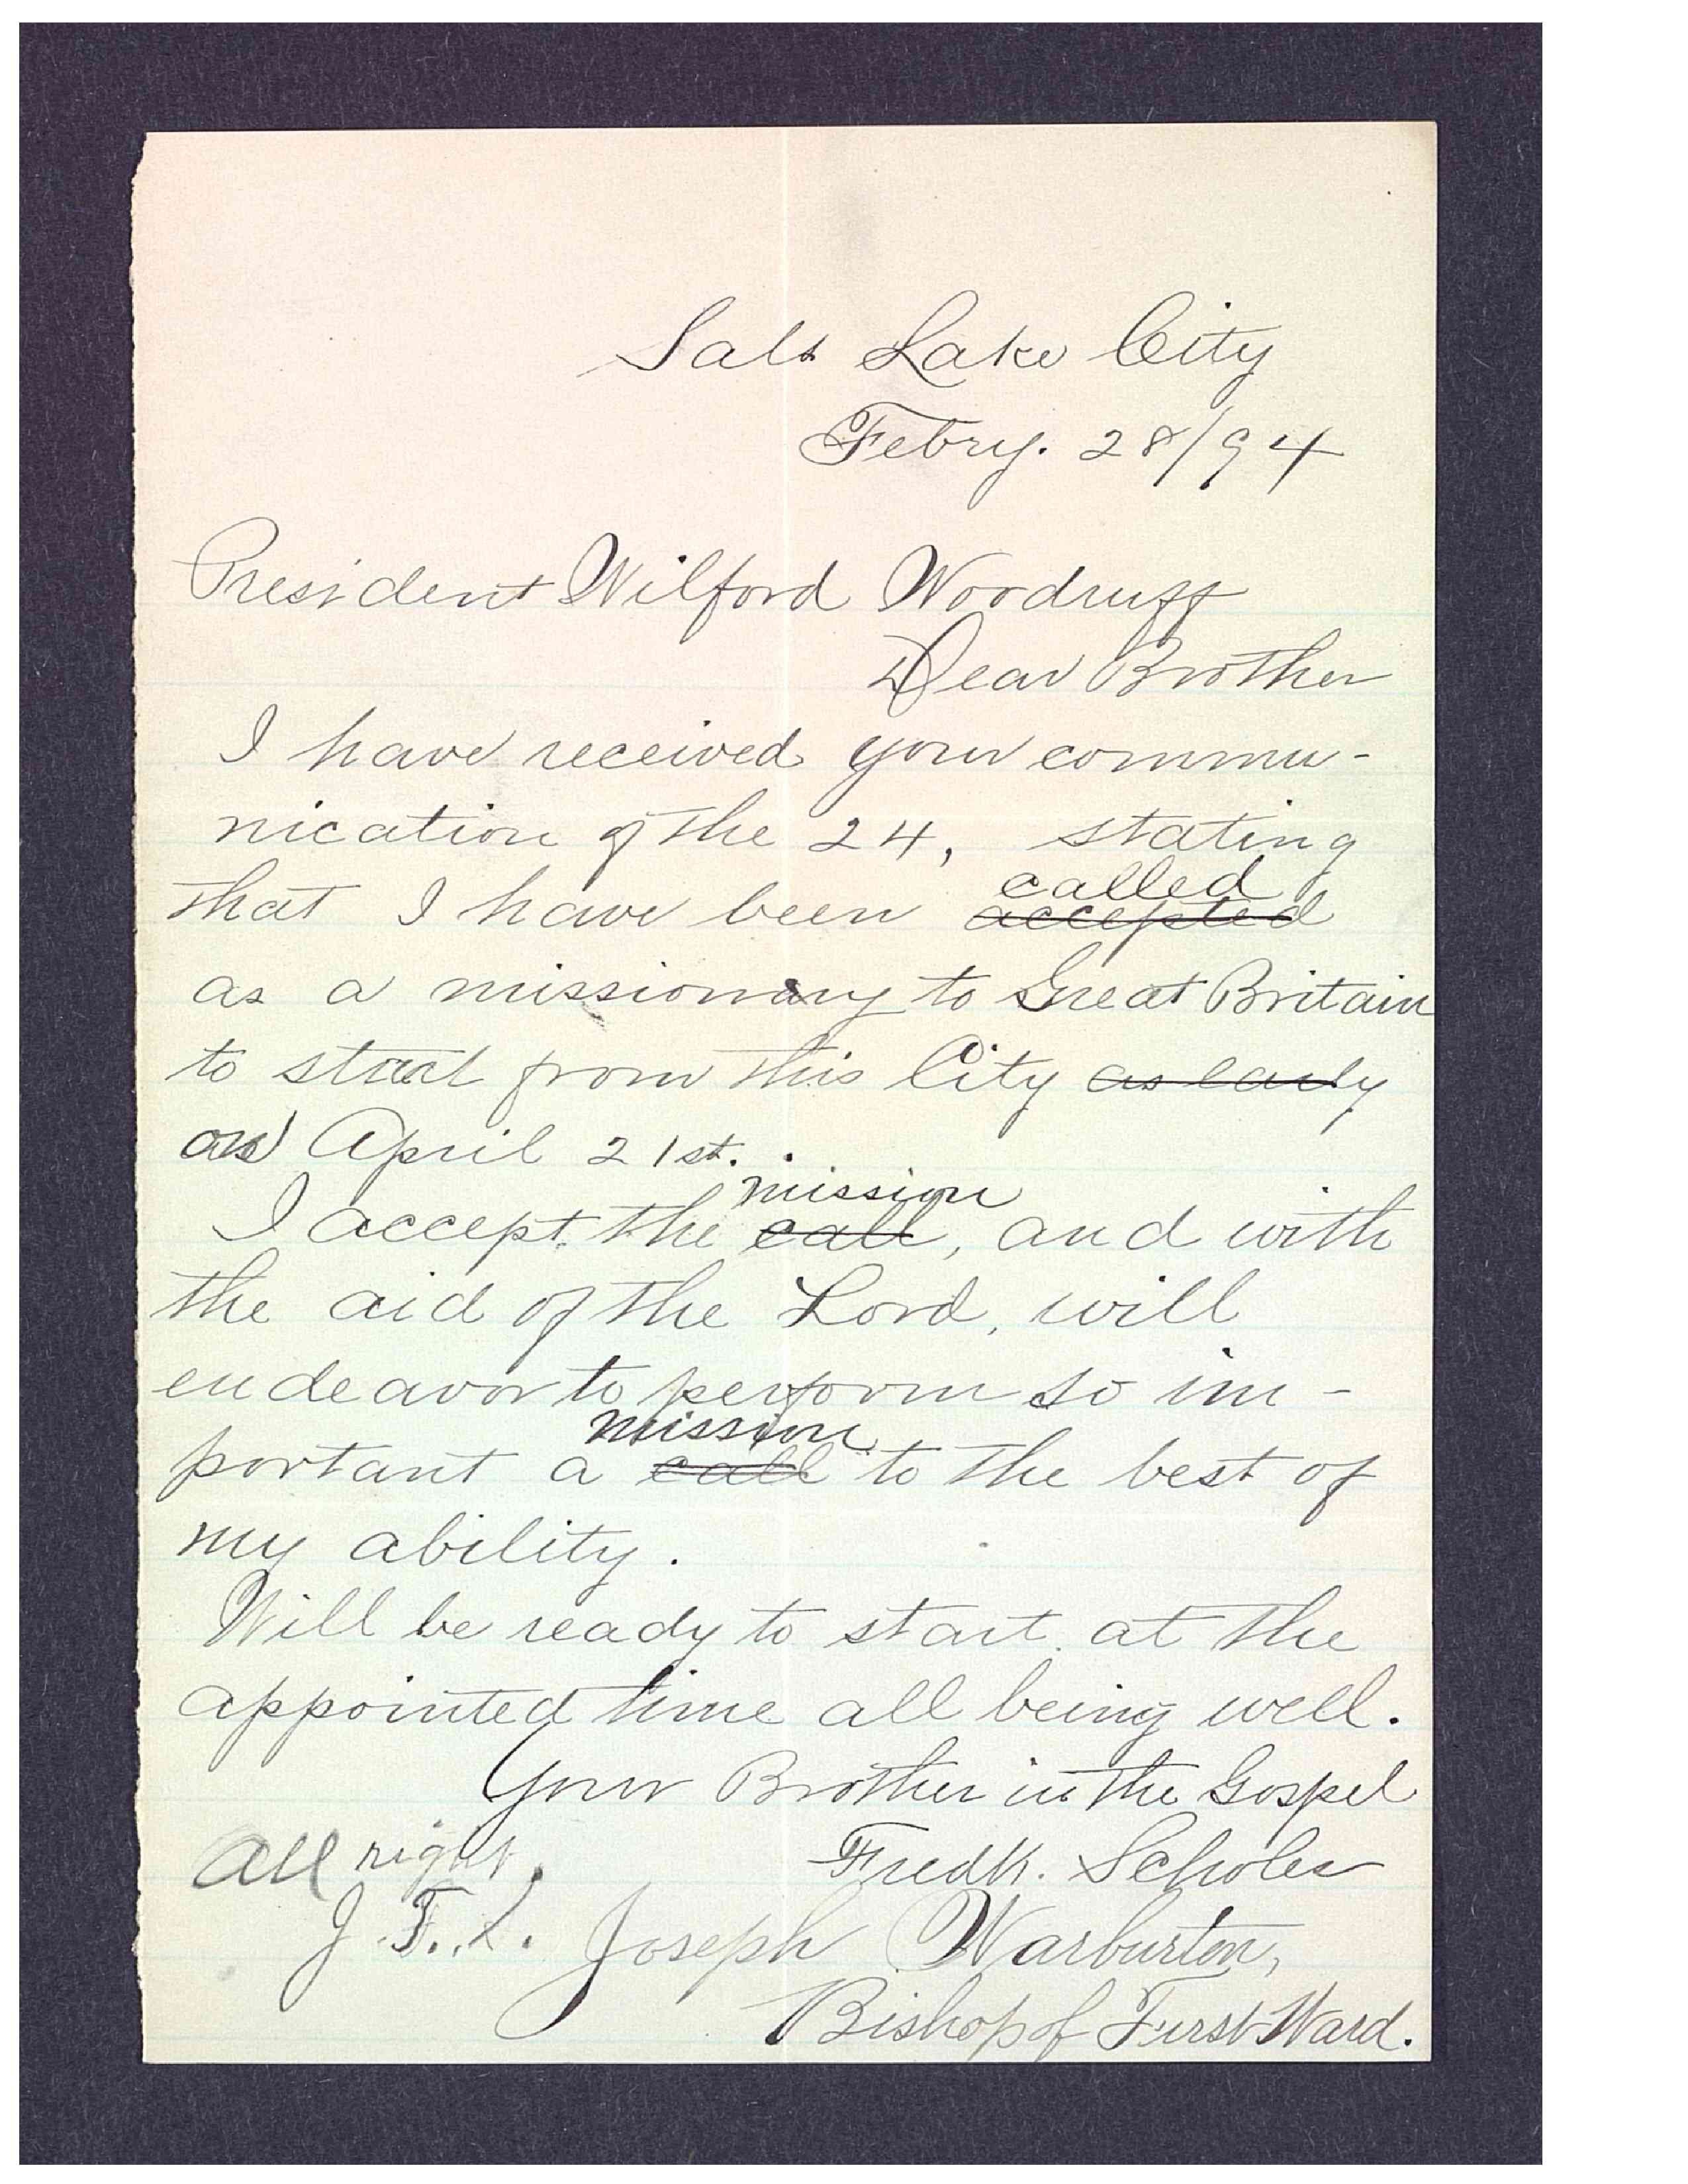 Salt Lake City
Febry. 28/94
President Wilford Woodruff
Dear Brother
I have received your commu-
nication of the 24, stating
called
that I have been accepted
as a missionary to Great Britain
to start from this City as early
on April 21st.
mission
I accept the call, and with
the aid of the Lord, will
endeavor to perform so im-
mission
portant a call to the best of
my ability.
Will be ready to start at the
appointed time all being well.
Your Brother in the Gospel
Fredk. Scholes
All right.
J. F. S.
Joseph Warburton,
Bishop of First Ward.